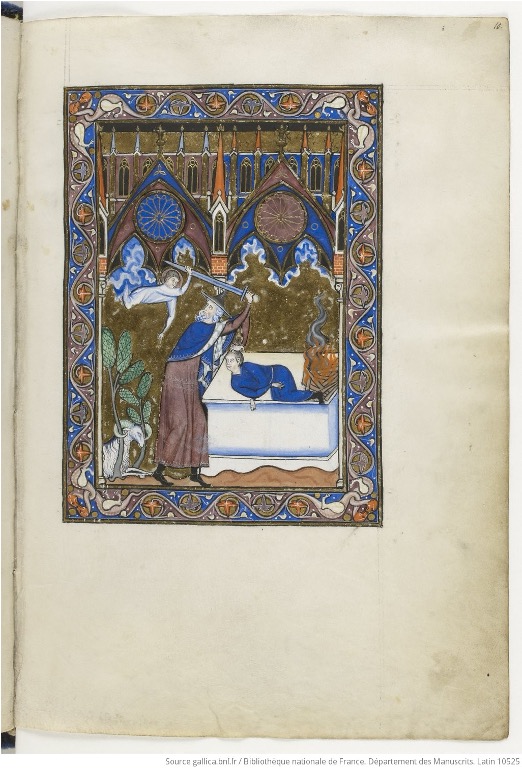 10.
Source gallica.bnf.fr / Bibliothèque nationale de France. Département des Manuscrits. Latin 10525